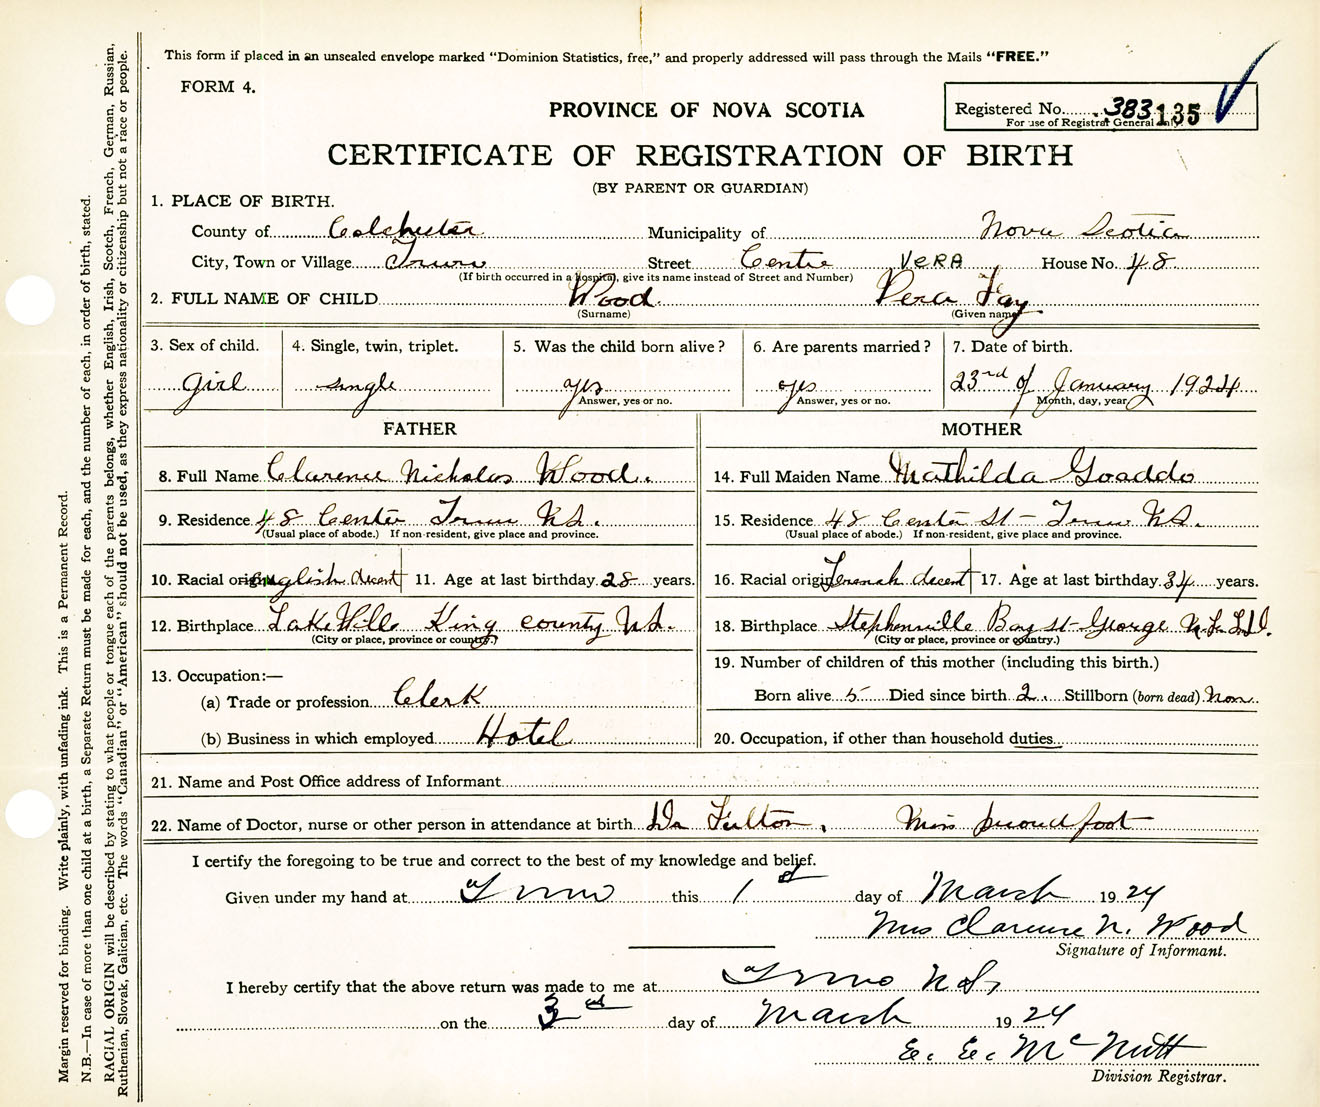 This form if placed in an unsealed envelope marked "Dominion Statistics, free," and properly addressed will pass through the Mails "FREE."
FORM 4.
Registered No. 383135
For use of Registrar General only.
PROVINCE OF NOVA SCOTIA
CERTIFICATE OF REGISTRATION OF BIRTH
(BY PARENT OR GUARDIAN)
1. PLACE OF BIRTH.
County of Colchester Municipality of Nova Scotia
City, Town or Village Truro Street Centre VERA House No. 48
(If birth occurred in a hospital, give its name instead of Street and Number)
2. FULL NAME OF CHILD Wood Vera Fay
(Surname) (Given name)
3. Sex of child. 4. Single, twin, triplet. 5. Was the child born alive? 6. Are parents married? 7. Date of birth.
girl single yes yes 23rd of January 1924
Answer, yes or no. Answer, yes or no. Month, day, year
FATHER MOTHER
8. Full Name Clarence Nicholas Wood. 14. Full Maiden Name Mathilda Goaddo
9. Residence 48 Center Truro N.S. 15. Residence 48 Center St - Truro N.S.
(Usual place of abode.) If non-resident, give place and province. (Usual place of abode.) If non-resident, give place and province.
10. Racial origin English decent 11. Age at last birthday 28 years. 16. Racial origin decent 17. Age at last birthday 34 years.
12. Birthplace Lake Ville King county N.S. 18. Birthplace Stephenville Bay St George N.F.L.D.
(City or place, province or country.) (City or place, province or country.)
13. Occupation:— 19. Number of children of this mother (including this birth.)
(a) Trade or profession Clerk Born alive 5 Died since birth 2. Stillborn (born dead) Non
(b) Business in which employed Hotel 20. Occupation, if other than household duties
21. Name and Post Office address of Informant
22. Name of Doctor, nurse or other person in attendance at birth Dr Fulton, Miss proudfoot
I certify the foregoing to be true and correct to the best of my knowledge and belief.
Given under my hand at Truro this 1st day of March 1924
Mrs Clarence N. Wood
Signature of Informant.
I hereby certify that the above return was made to me at Truro N.S.
on the 3rd day of March 1924
E. E. McNutt
Division Registrar.
Margin reserved for binding. Write plainly, with unfading ink. This is a Permanent Record.
N.B.—In case of more than one child at a birth, a Separate Return must be made for each, and the number of each, in order of birth, stated.
RACIAL ORIGIN will be described by stating to what people or tongue each of the parents belongs, whether English, Irish, Scotch, French, German, Russian,
Ruthenian, Slovak, Galician, etc. The words "Canadian" or "American" should not be used, as they express nationality or citizenship but not a race or people.